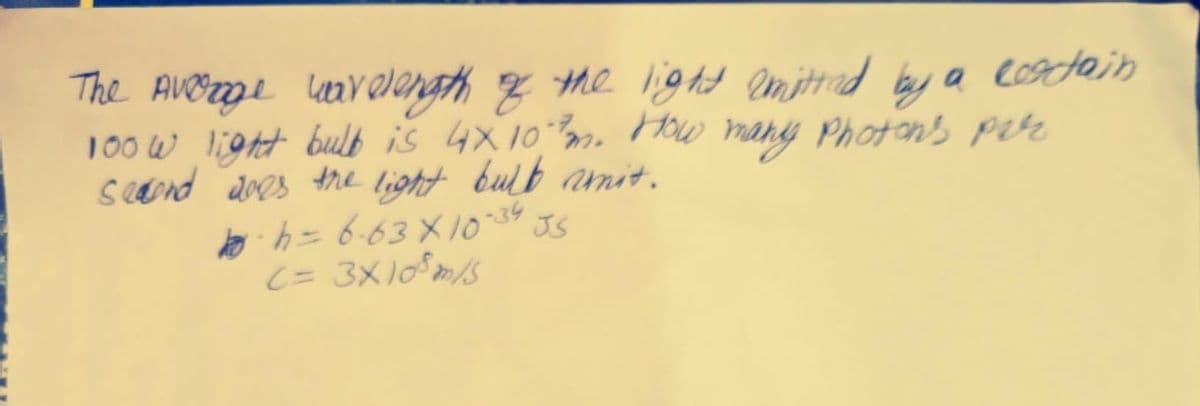 The Average wavelength of the light emitted by a certain
100 W light bulb is 4×10⁻⁷m. How many Photons per
second does the light bulb emit.
h = 6.63 × 10⁻³⁴ JS
C = 3×10⁸ m/s